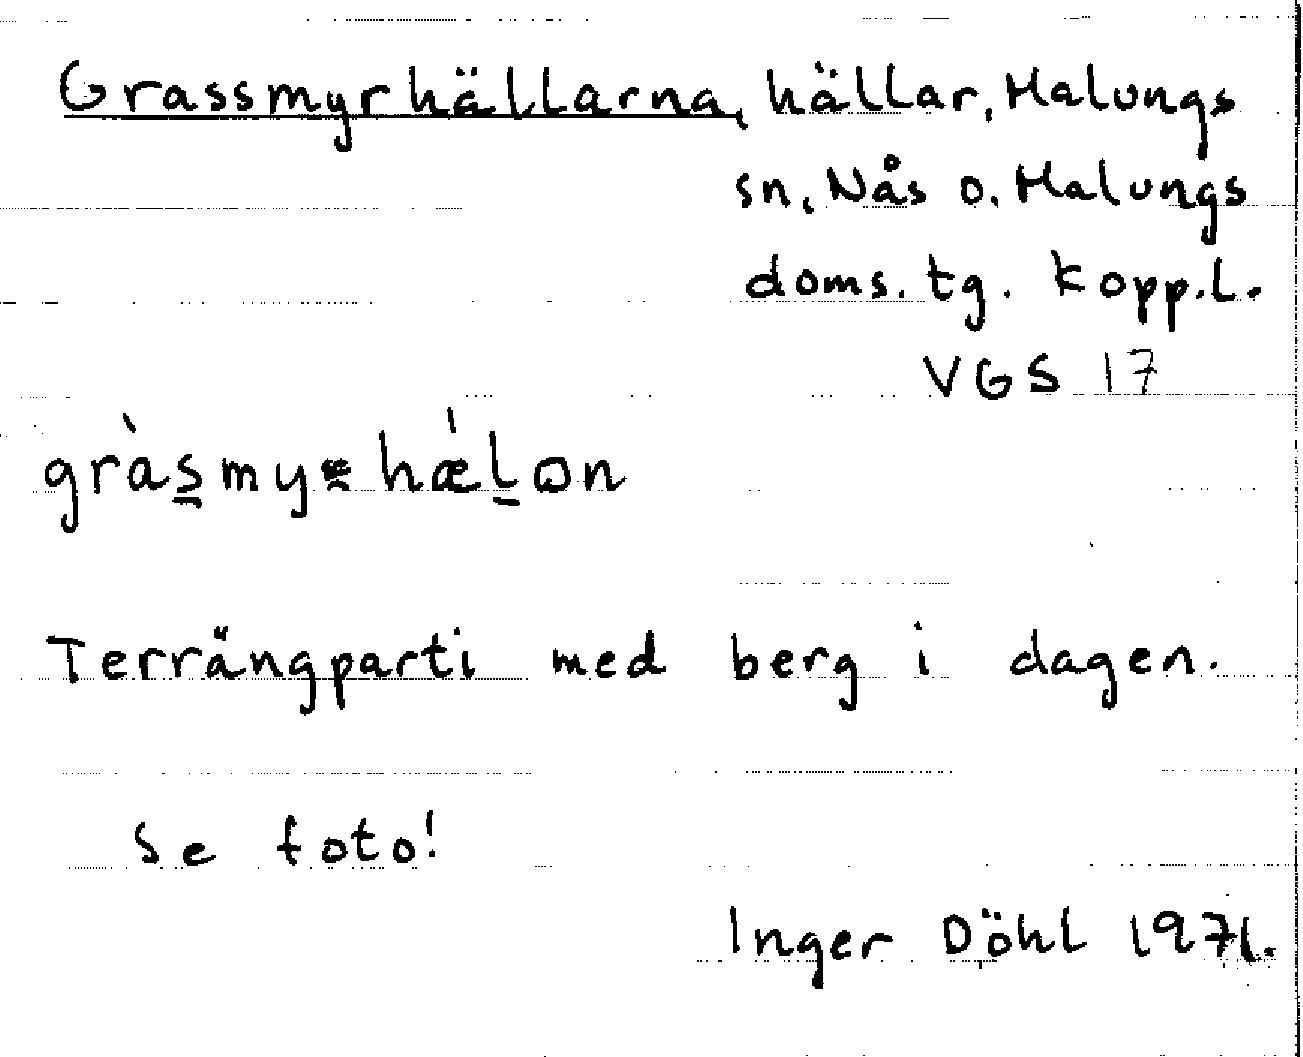 Grassmyrhällarna, hällar, Malungs
sn, Nås o. Malungs
doms. tg. Kopp.l.
VGS 17
Terrängparti med berg i dagen.
Se foto!
Inger Döhl 1971.